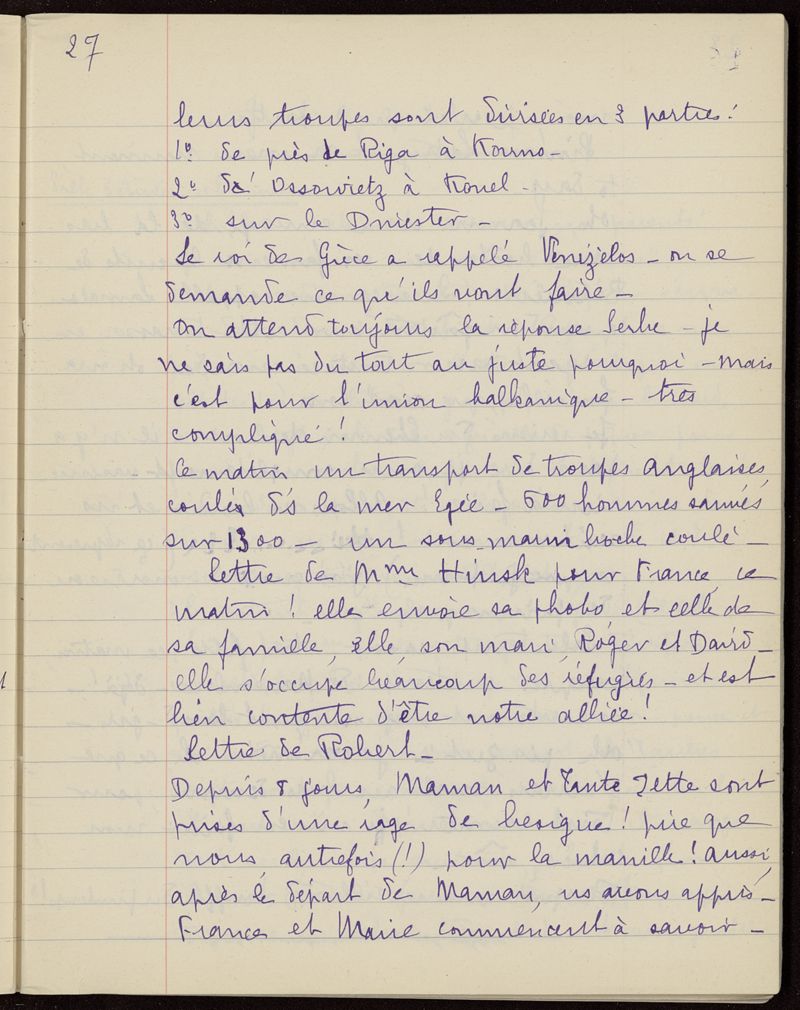 27
leurs troupes sont divisées en 3 parties :
1º de près de Riga à Kovno –
2º d' Ossowietz à Kovel –
3º sur le Dniester –
Le roi de Grèce a rappelé Venizelos – on se
demande ce qu'ils vont faire –
On attend toujours la réponse Serbe – je
ne sais pas du tout au juste pourquoi – mais
c'est pour l'union balkanique – très
compliqué !
Ce matin un transport de troupes anglaises
coulés ds la mer Egée – 600 hommes sauvés
sur 1300 – un sous-marin boche coulé –
Lettre de Mme Hinsk pour France ce
matin ! elle envoie sa photo et celle de
sa famille, Elle, son mari, Roger et David –
elle s'occupe beaucoup des réfugiés – et est
bien contente d'être notre alliée !
Lettre de Robert –
Depuis 8 jours, Maman et Tante Jette sont
prises d'une rage de besigue ! pire que
nous autrefois (!) pour la manille ! aussi,
après le départ de Maman, ns avons appris –
France et Marie commencent à savoir –